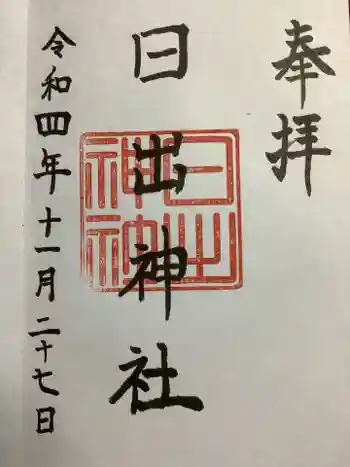 奉拝
日出神社
令和四年十一月二十七日